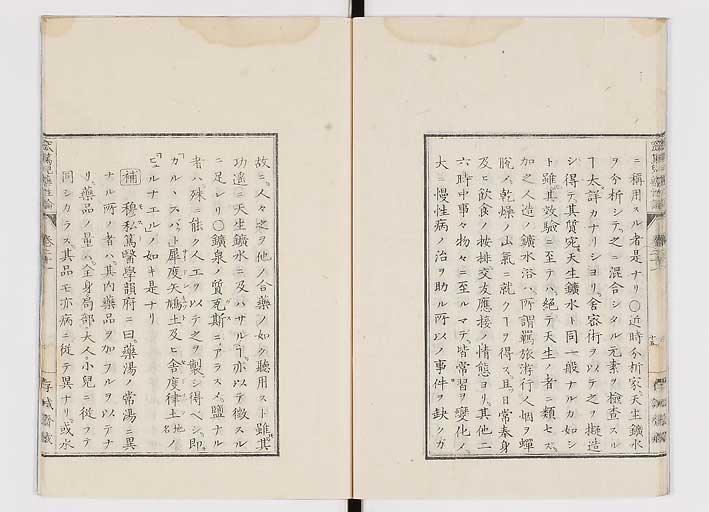 ニ稱用スル者是ナリ〇近時分析家、天生鑛水
ヲ分析シテ、之ニ混合シタル元素ヲ檢査スル
ヿ太詳カナリシヨリ、舍密術ヲ以テ之ヲ擬造
シ得テ、其質宛モ天生鑛水ト同一般ナルカ如シ
ト雖𪜈、其效驗ニ至テハ、絶テ天生ノ者ニ類セズ、
加之人造ノ鑛水浴ハ、所謂羇旅游行人烟ヲ蟬
脫メ、乾燥ノ山氣ニ就クヿヲ得ス、且日常奉身
及ヒ飲食ノ按排交友應接ノ情態ヨリ、其他二
六時中事々物々ニ至ルマデ、皆常習ヲ變化メ、
大ニ慢性病ノ治ヲ助ル所以ノ事件ヲ缺クガ
故ニ、人々之ヲ他ノ合藥ノ如ク聽用スト雖𪜈、其
功遥ニ天生鑛水ニ及ハサルヿ、亦以テ徵スル
ニ足レリ〇鑛泉ノ質、瓦斯ニアラスメ、鹽ナル
者ハ殊ニ能ク人工ヲ以テ之ヲ製シ得ベシ、即
カル、スバ
土及ヒ
律土地名ノ
ヒルナエル」ノ如キ是ナリ
補 穆私篤醫學韻府ニ曰、藥湯ノ常湯ニ異
ナル所ノ者ハ、其内藥品ヲ加フルヲ以テナ
リ、藥品ノ量ハ、全身局部大人小兒ニ從フテ
同シカラス、其品モ亦病ニ從テ異ナリ、或水